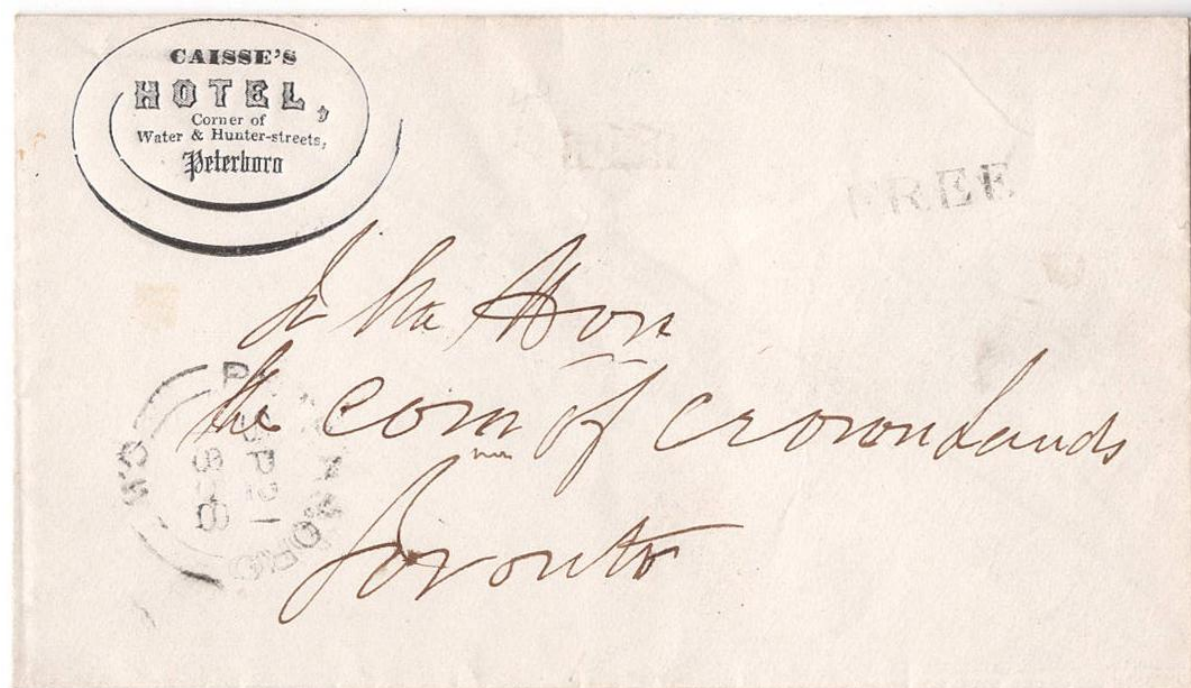 CAISSE'S
HOTEL,
Corner of
Water & Hunter-streets,
Peterboro
FREE
To the Hon
the Com of Crown Lands
Toronto
C.W